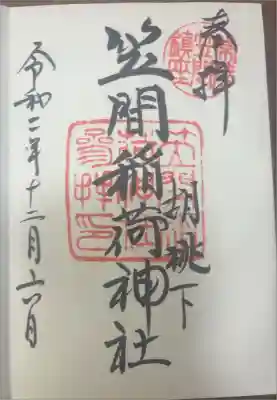 奉拝
胡桃下
笠間稲荷神社
令和二年十二月六日